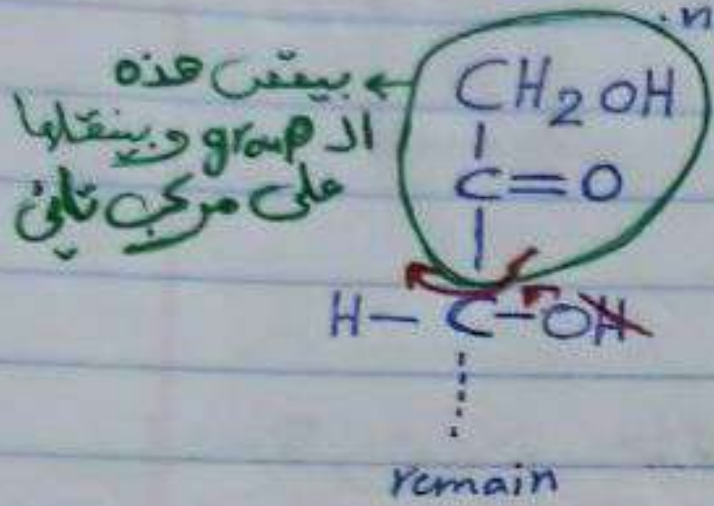 .n
بيقص هذه
ال group وبينقلها
على مركب تاني
CH₂OH
C=O
H-C-OH
remain